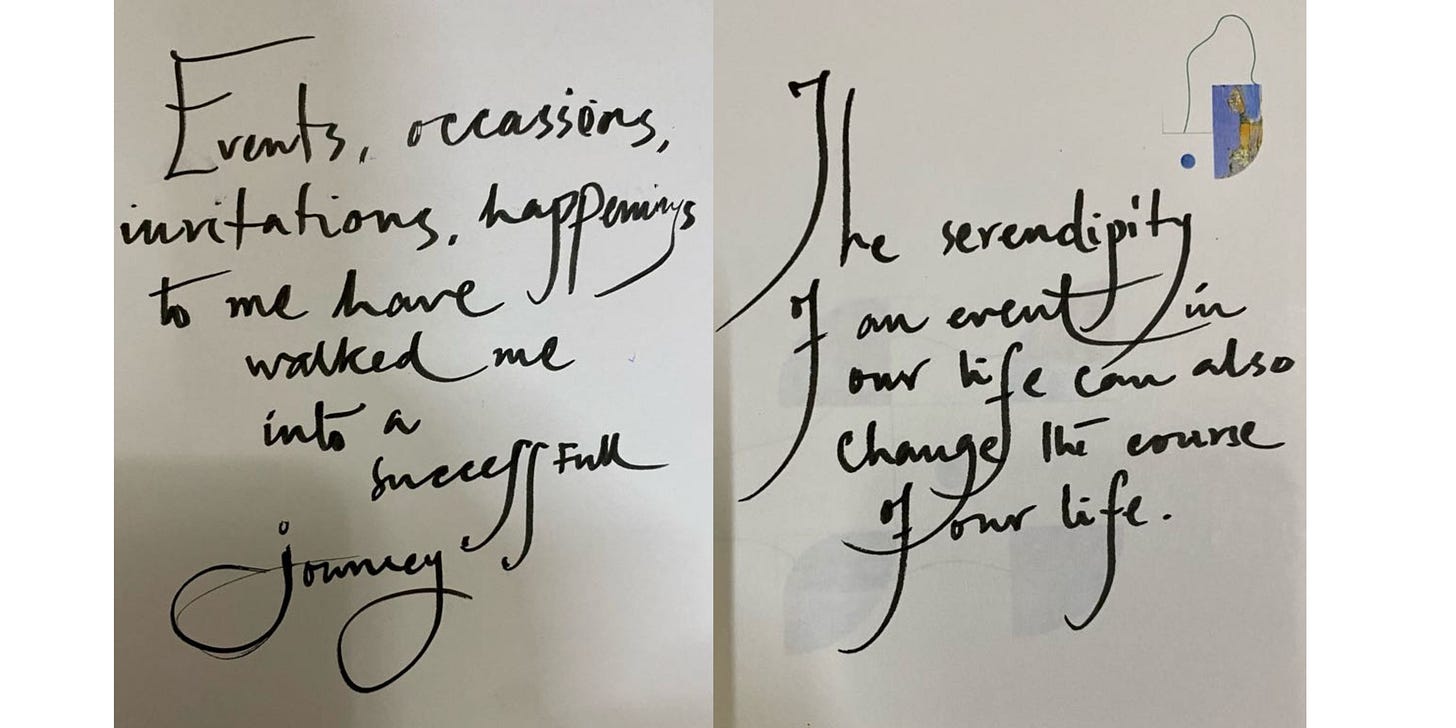 Events, occassions,
invitations, happenings
to me have
walked me
into a
successfull
journey
The serendipity
of an event in
our life can also
change the course
of our life.